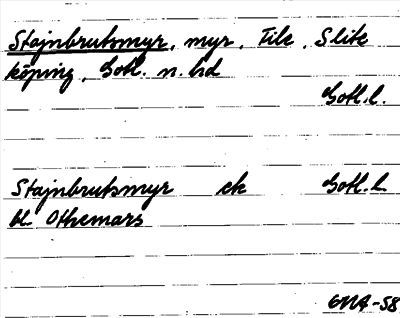 Stajnbrutsmyr, myr, Tile, Slite
köping, Gotl. n. hd
Gotl. l.
Stajnbrutsmyr ek Gotl. l.
bl. Othemars
GNA-58